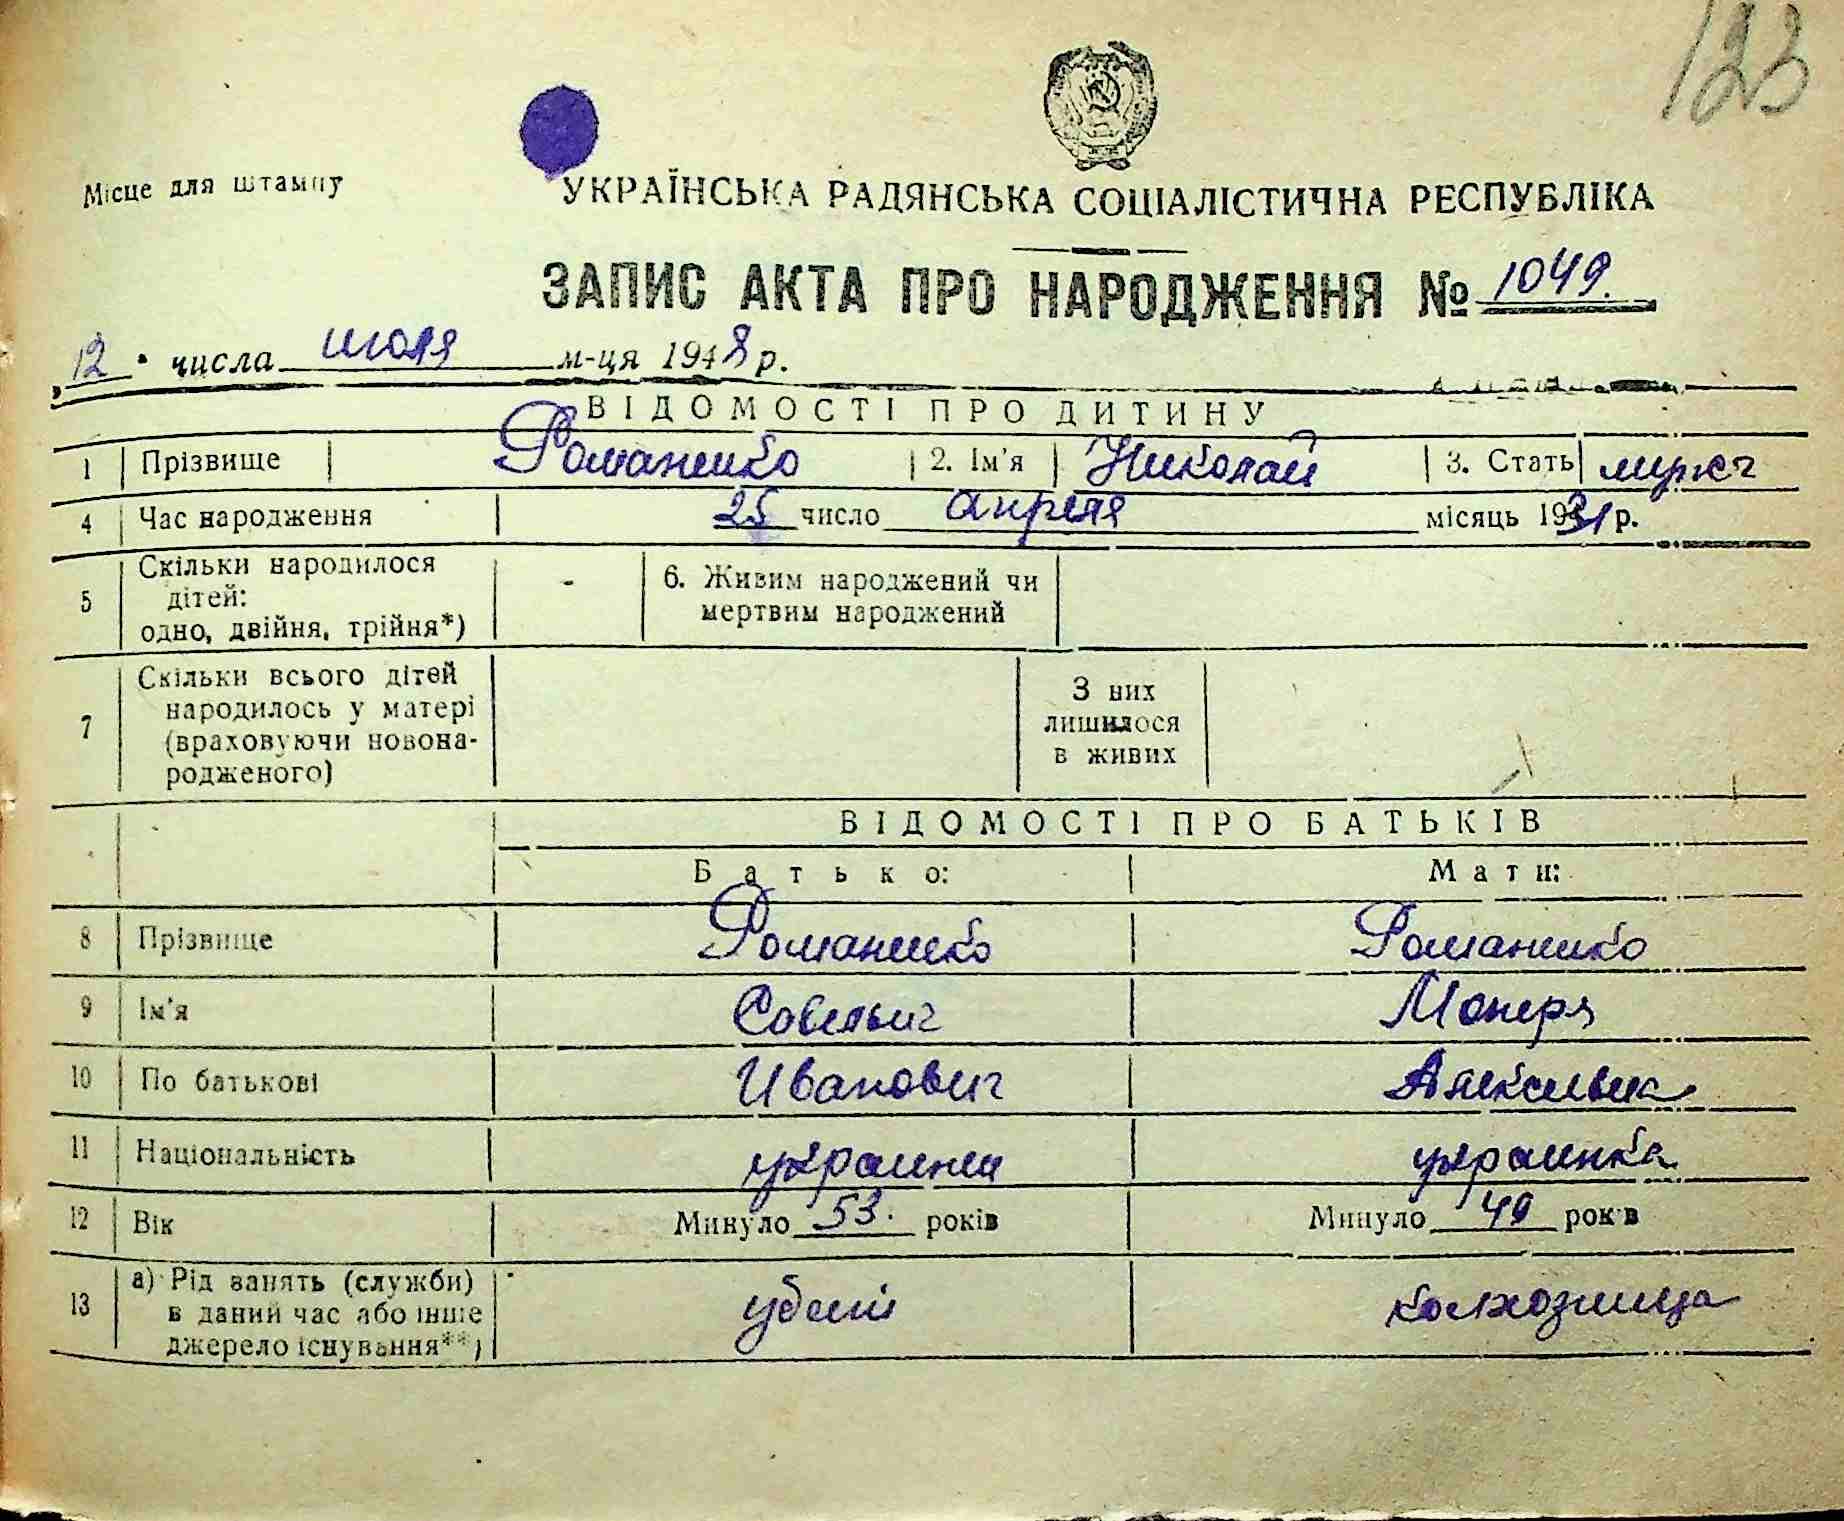 123
Місце для штампу
УКРАЇНСЬКА РАДЯНСЬКА СОЦІАЛІСТИЧНА РЕСПУБЛІКА
ЗАПИС АКТА ПРО НАРОДЖЕННЯ № 1049.
12 числа июля м-ця 1948 р.
ВІДОМОСТІ ПРО ДИТИНУ
1 Прізвище Романенко 2. Ім'я Николай 3. Стать мужс
4 Час народження 25 число апреля місяць 1931 р.
5 Скільки народилося дітей: одно, двійня, трійня*) - 6. Живим народжений чи мертвим народжений
7 Скільки всього дітей народилось у матері (враховуючи новонародженого) З них лишилося в живих
ВІДОМОСТІ ПРО БАТЬКІВ
Батько: Мати:
8 Прізвище Романенко Романенко
9 Ім'я Савельич
10 По батькові Иванович
11 Національність украинец украинка
12 Вік Минуло 53. років Минуло 49 років
13 а) Рід занять (служби) в даний час або інше джерело існування**) убит колхозница